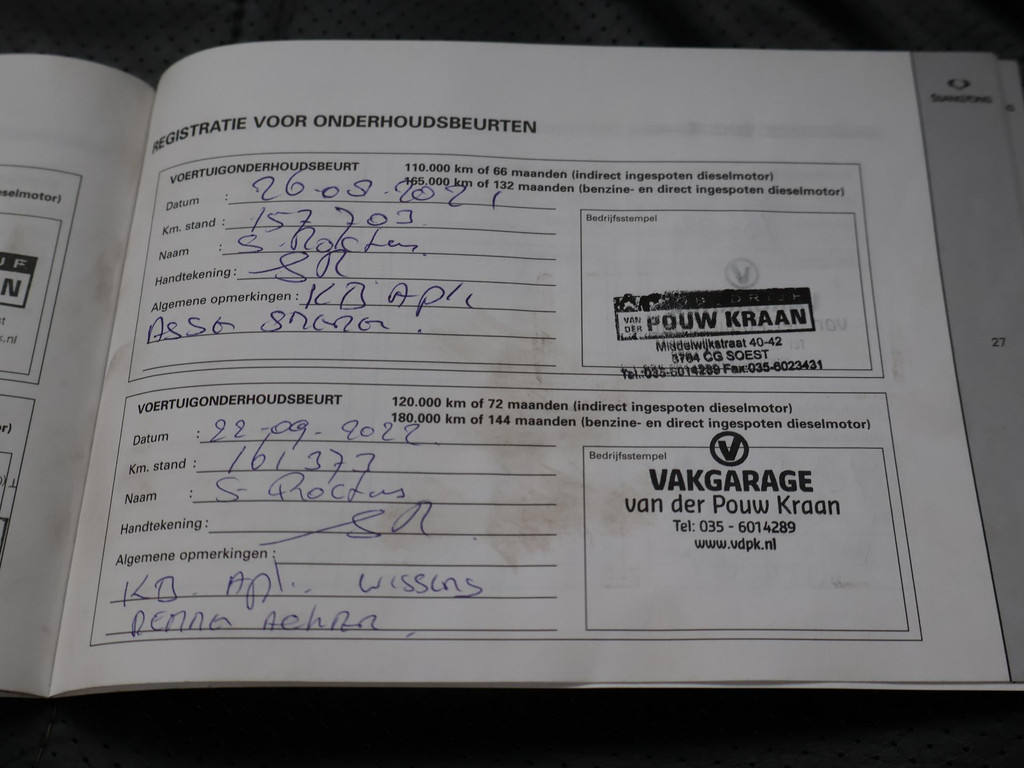 SSANGYONG
REGISTRATIE VOOR ONDERHOUDSBEURTEN
VOERTUIGONDERHOUDSBEURT
110.000 km of 66 maanden (indirect ingespoten dieselmotor)
165.000 km of 132 maanden (benzine- en direct ingespoten dieselmotor)
Datum : 26-08-2021
Km. stand : 157703
Naam : S
Handtekening: SR
Algemene opmerkingen : KB Apk
Bedrijfsstempel
BEDRIJF
VAN DER POUW KRAAN
Middelwijkstraat 40-42
3764 CG SOEST
Tel.:035-6014289 Fax:035-6023431
27
VOERTUIGONDERHOUDSBEURT
120.000 km of 72 maanden (indirect ingespoten dieselmotor)
180.000 km of 144 maanden (benzine- en direct ingespoten dieselmotor)
Datum : 22-09-2022
Km. stand : 161373
Naam : S
Handtekening: SR
Algemene opmerkingen :
KB Apk. wissers
remmen achter
Bedrijfsstempel
VAKGARAGE
van der Pouw Kraan
Tel: 035 - 6014289
www.vdpk.nl